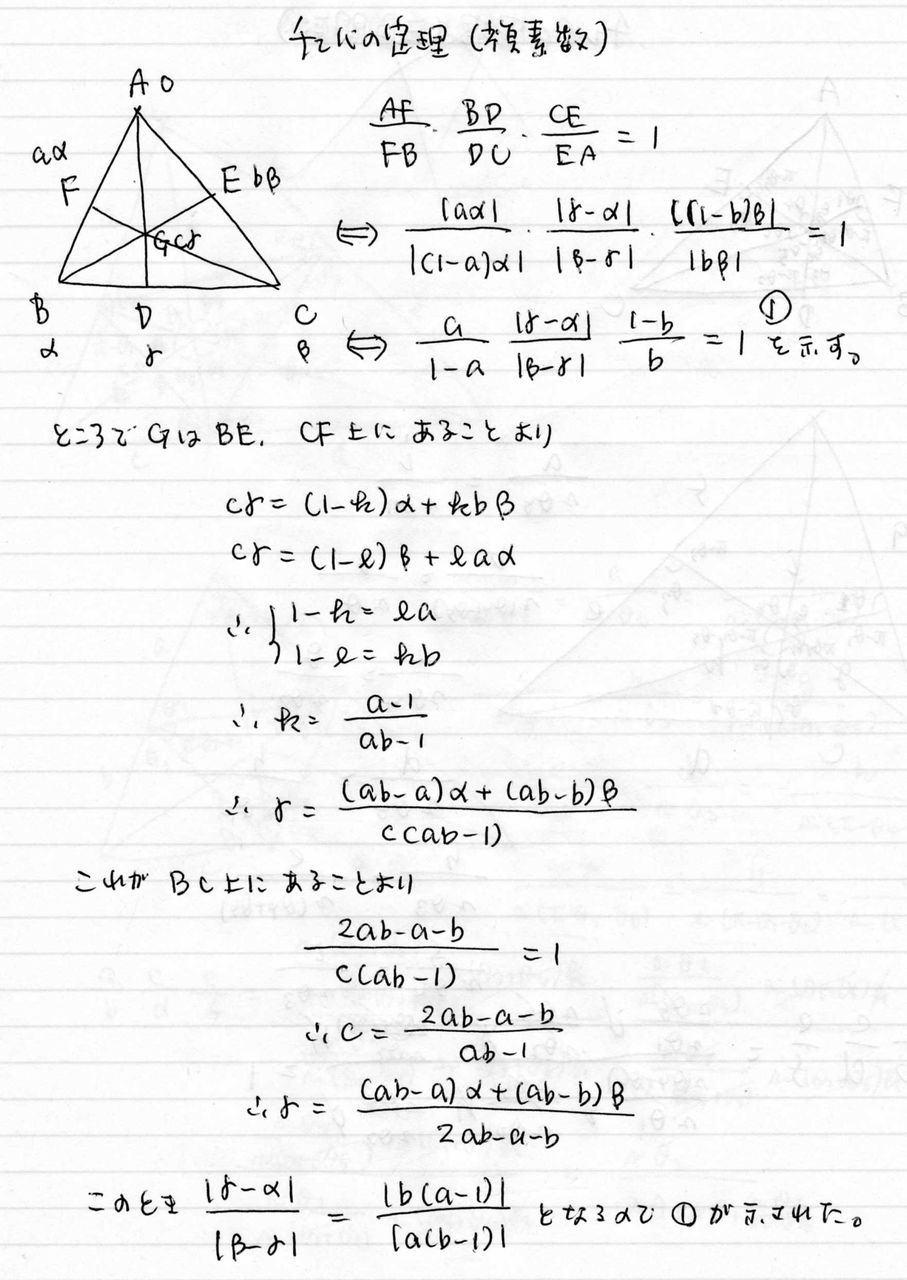 チェバの定理 (複素数)
A 0
aα
F
E bβ
G cγ
B D C
α γ β
AF/FB · BD/DC · CE/EA = 1
⇔ |aα|/|(1-a)α| · |γ-α|/|β-γ| · |(1-b)β|/|bβ| = 1
⇔ a/(1-a) |γ-α|/|β-γ| (1-b)/b = 1 ① を示す。
ところで GはBE, CF上にあることより
cγ = (1-k)α + kbβ
cγ = (1-l)β + laα
∴ { 1-k = la
1-l = kb
∴ k = (a-1)/(ab-1)
∴ γ = ((ab-a)α + (ab-b)β)/(c(ab-1))
これが BC上にあることより
(2ab-a-b)/(c(ab-1)) = 1
∴ c = (2ab-a-b)/(ab-1)
∴ γ = ((ab-a)α + (ab-b)β)/(2ab-a-b)
このとき |γ-α|/|β-γ| = |b(a-1)|/|a(b-1)| となるので ① が示された。